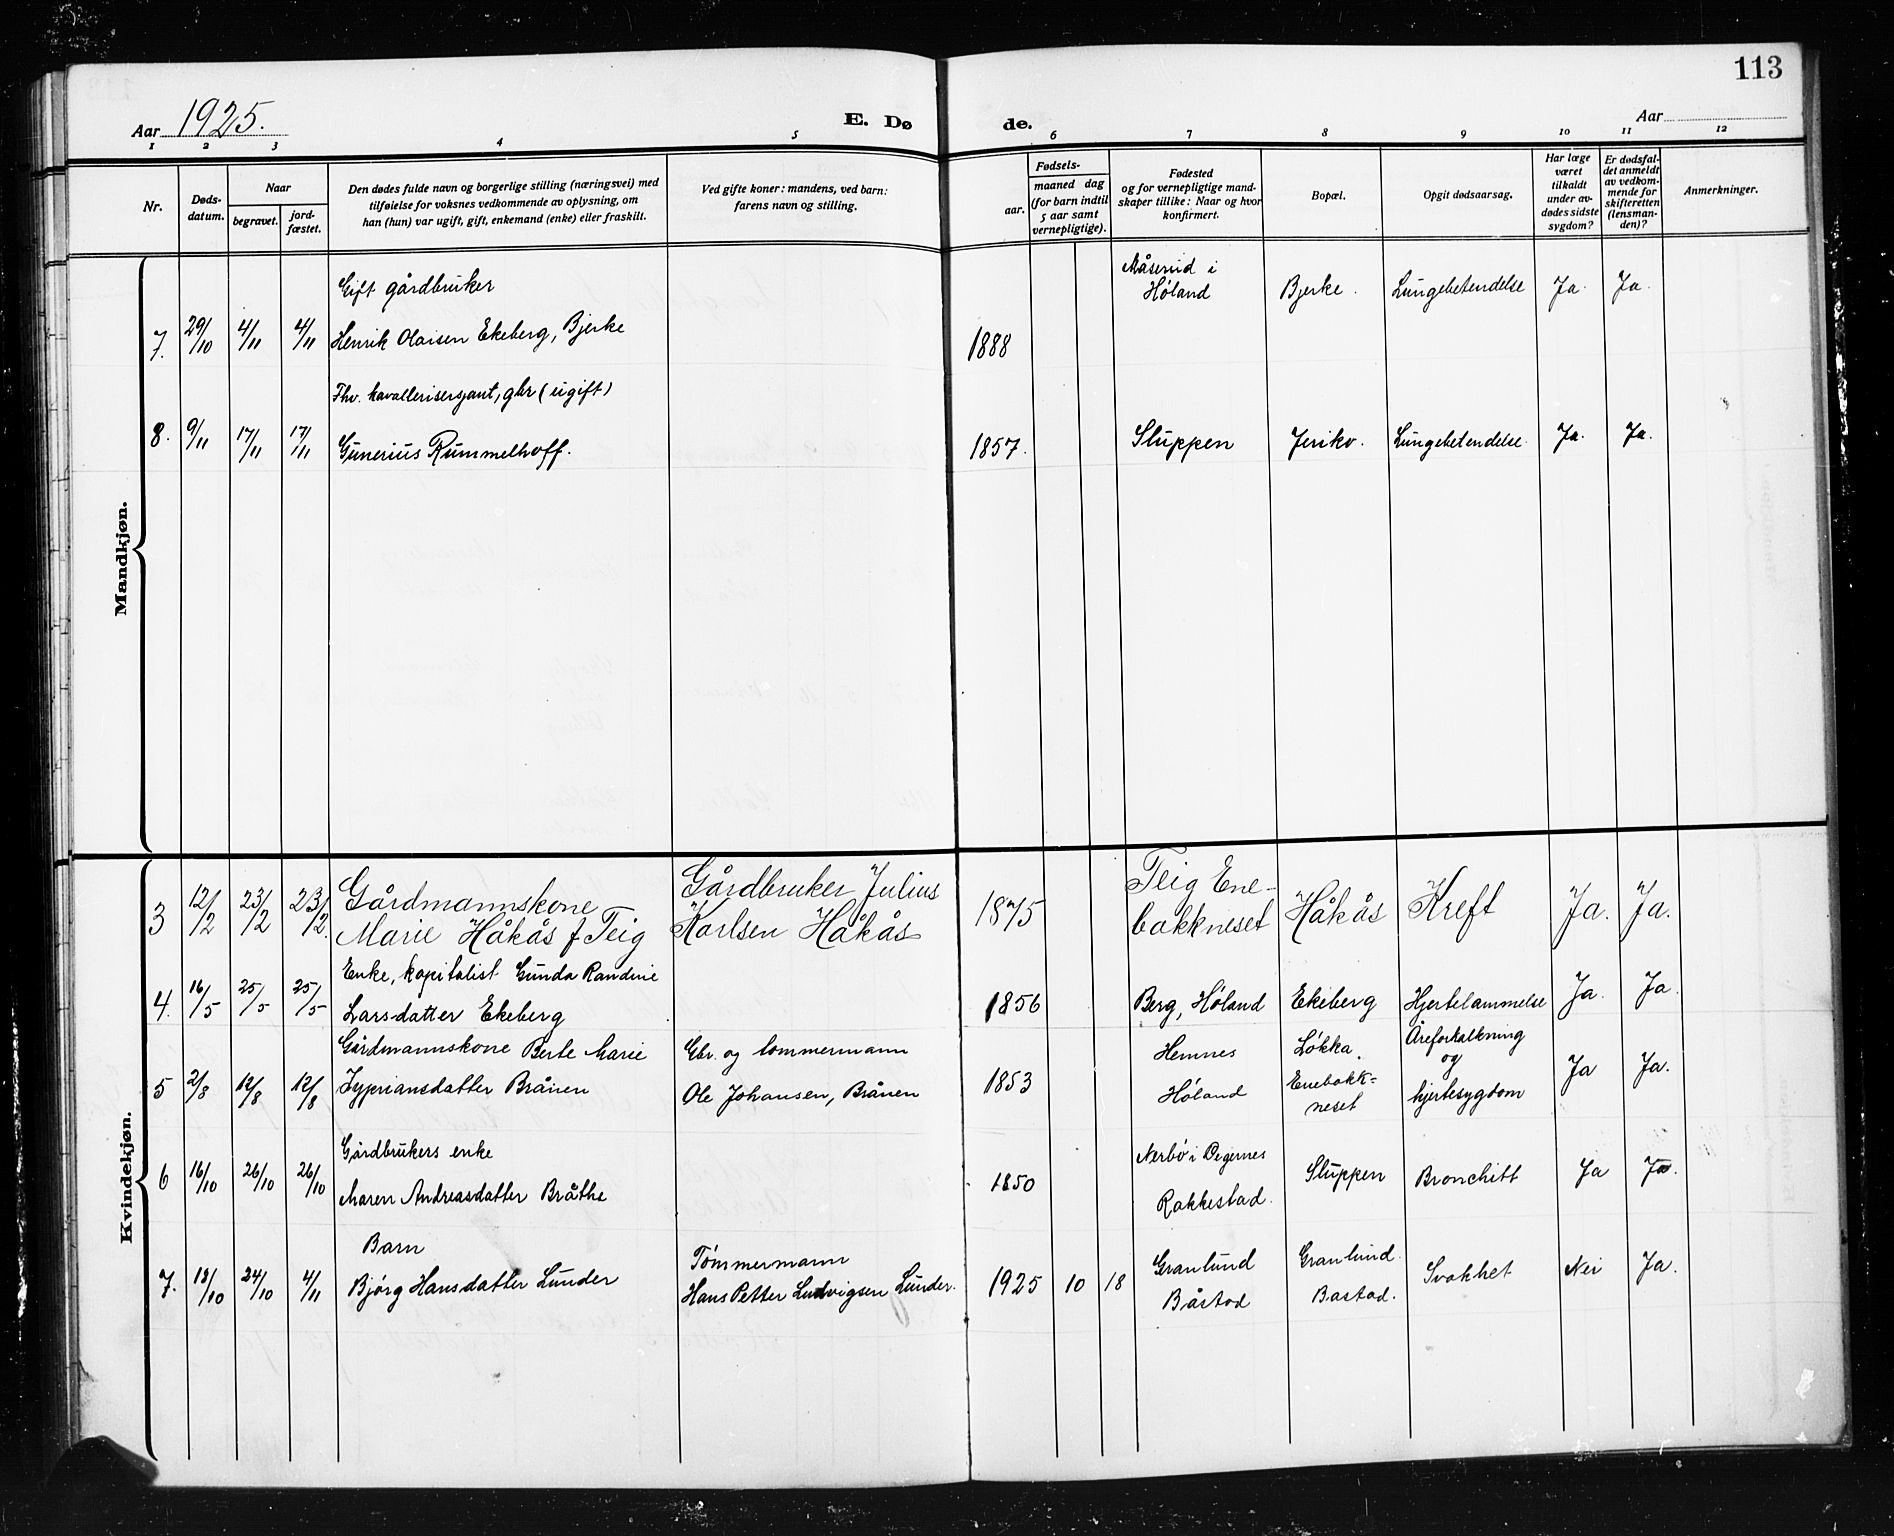 113
Aar 1925.
E. Dø de.
Aar
1 2 3 4 5 6 7 8 9 10 11 12
Nr.
Døds-
datum.
Naar
begravet.
jord-
fæstet.
Den dødes fulde navn og borgerlige stilling (næringsvei) med
tilføielse for voksnes vedkommende av oplysning, om
han (hun) var ugift, gift, enkemand (enke) eller fraskilt.
Ved gifte koner: mandens, ved barn:
farens navn og stilling.
Fødsels-
aar.
maaned dag
(for barn indtil
5 aar samt
vernepligtige).
Fødested
og for vernepligtige mand-
skaper tillike: Naar og hvor
konfirmert.
Bopæl.
Opgit dødsaarsag.
Har læge
været
tilkaldt
under av-
dødes sidste
sygdom?
Er dødsfal-
det anmeldt
av vedkom-
mende for
skifteretten
(lensman-
den)?
Anmerkninger.
Mandkjøn.
Gift gårdbruker
7. 29/10 4/11 4/11 Henrik Olaisen Ekeberg, Bjerke
1888
Måserud i
Høland
Bjerke.
Lungebetendelse
Ja.
Ja.
Fhv. kavallerisersjant, gbr (ugift)
8. 9/11 17/11 17/11 Gunerius Rummelhoff.
1857. Sluppen Jeriko. Lungebetendelse. Ja. Ja.
Kvindekjøn.
3 12/2 23/2 23/2.
Gårdmannskone
Marie Håkås f Teig
Gårdbruker Julius
Karlsen Håkås
1875
Teig Ene-
bakkneset
Håkås Kreft Ja. Ja.
4. 16/5 25/5 25/5
Enke, kapitalist Gunda Randine
Larsdatter Ekeberg
1856 Berg, Høland Ekeberg Hjertelammelse Ja. Ja.
5 2/8 12/8 12/8
Gårdmannskone Berte Marie
Sypriansdatter Brånen
Gbr. og tommermann
Ole Johansen, Brånen
1853
Hemnes
Høland
Løkka.
Enebakk=
neset
Åreforkalkning
og
hjertesygdom
Ja
Ja.
6 16/10 26/10 26/10
Gårdbrukers enke
Maren Andreasdatter Bråthe
1850
Nerbö i Degernes
Rakkestad.
Sluppen
Bronchitt
Ja
Ja.
7. 18/10 24/10 4/11
Barn
Bjørg Hansdatter Lunder
Tømmermann
Hans Petter Ludvigsen Lunder.
1925 10 18
Granlund
Båstad
Granlund.
Bastad.
Svakhet
Nei
Ja.